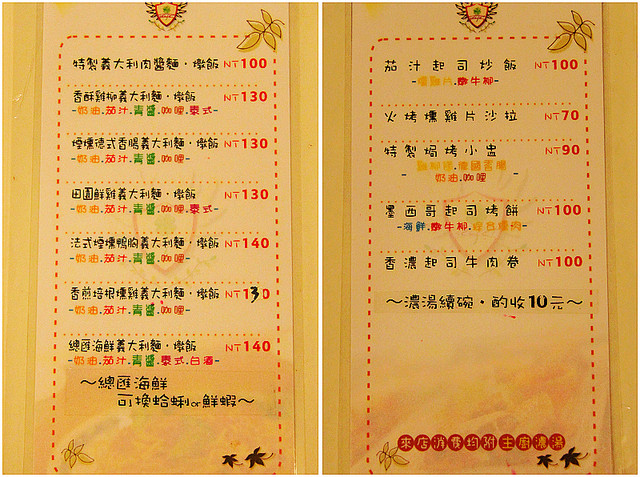 特製義大利肉醬麵．燉飯 NT100
香酥雞柳義大利麵．燉飯 NT130
-奶油.茄汁.青醬.咖哩.泰式-
煙燻德式香腸義大利麵．燉飯 NT130
-奶油.茄汁.青醬.咖哩-
田園鮮雞義大利麵．燉飯 NT130
-奶油.茄汁.青醬.咖哩.泰式-
法式煙燻鴨胸義大利麵．燉飯 NT140
-奶油.茄汁.青醬.咖哩-
香煎培根燻雞義大利麵．燉飯 NT130
-奶油.茄汁.青醬.咖哩-
總匯海鮮義大利麵．燉飯 NT140
-奶油.茄汁.青醬.泰式.白酒-
～總匯海鮮
可換蛤蜊or鮮蝦～
茄汁起司炒飯 NT100
-燻雞片.嫩牛柳-
火烤燻雞片沙拉 NT70
特製焗烤小盅 NT90
德國香腸
奶油.咖哩
墨西哥起司烤餅 NT100
-海鮮.嫩牛柳.
香濃起司牛肉卷 NT100
～濃湯續碗．酌收10元～
來店消費均附主廚濃湯